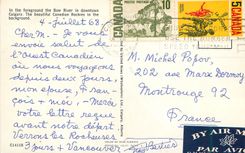 In the foreground the Bow River in downtown
Calgary. The beautiful Canadian Rockies in the
background.
4 - juillet 68
Cher M. - Je vous
envoie salut de
l'Ouest Canadien
où nous voyageons
depuis deux jours,
mon épouse, Fran-
çois + moi. - Merci
votre lettre reçue
avant notre départ
Verrons les Rocheuses
3 jours + Vancouver.
CANADA
10
5
CANADA
M. Michel Popov,
202, ave Marx Dormoy
Montrouge 92
France
AIR MAIL
PAR AVION